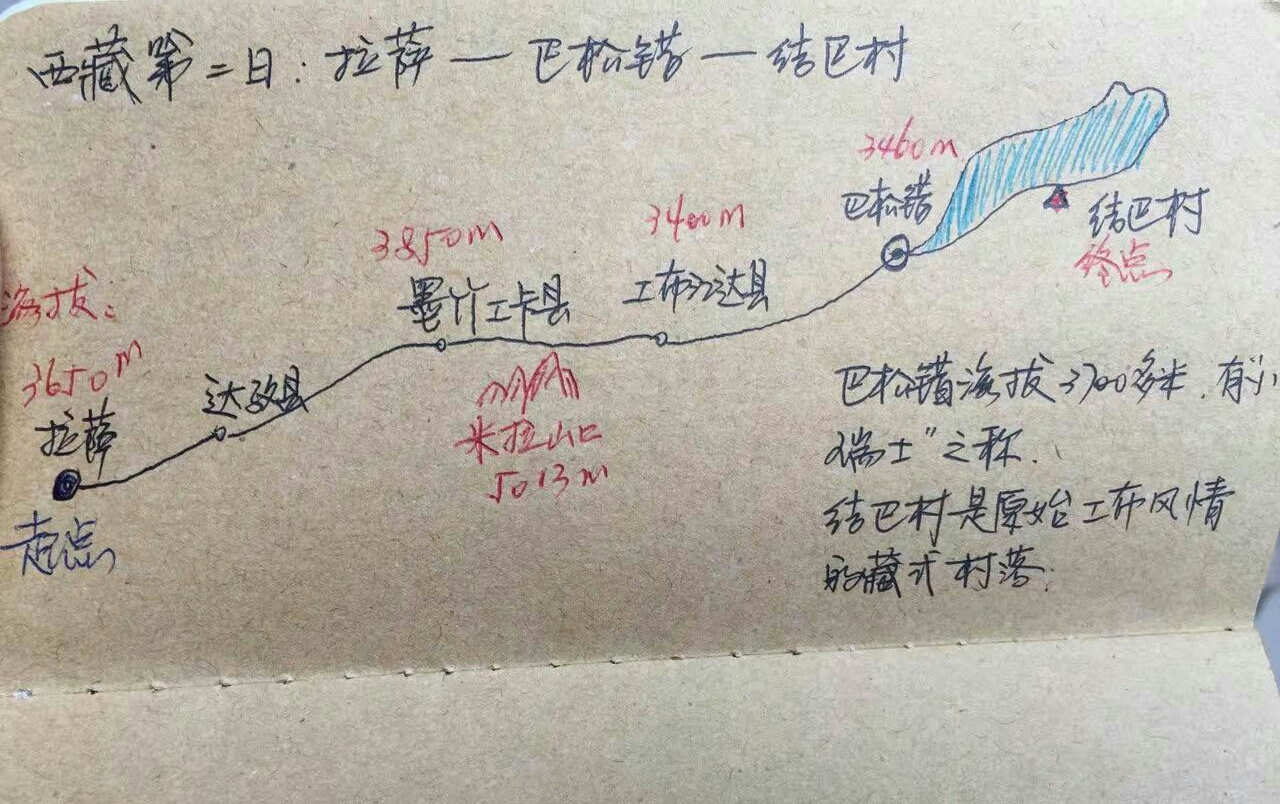 西藏第二日：拉萨—巴松错—结巴村
3460m
巴松错
结巴村
终点
3400m
工布江达县
3850m
墨竹工卡县
海拔：
3650m
拉萨
达孜县
米拉山口
5013m
起点
巴松错海拔3700多米，有“小
瑞士”之称.
结巴村是原始工布风情
的藏式村落.